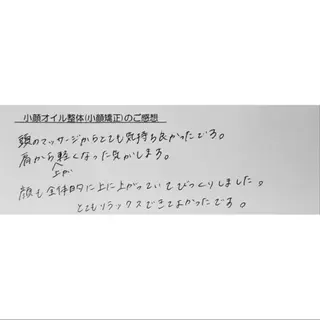 小顔オイル整体(小顔矯正)のご感想
頭のマッサージからとても気持ち良かったです。
肩から上が軽くなった気がします。
顔も全体的に上に上がっていてびっくりしました。
とてもリラックスできてよかったです。